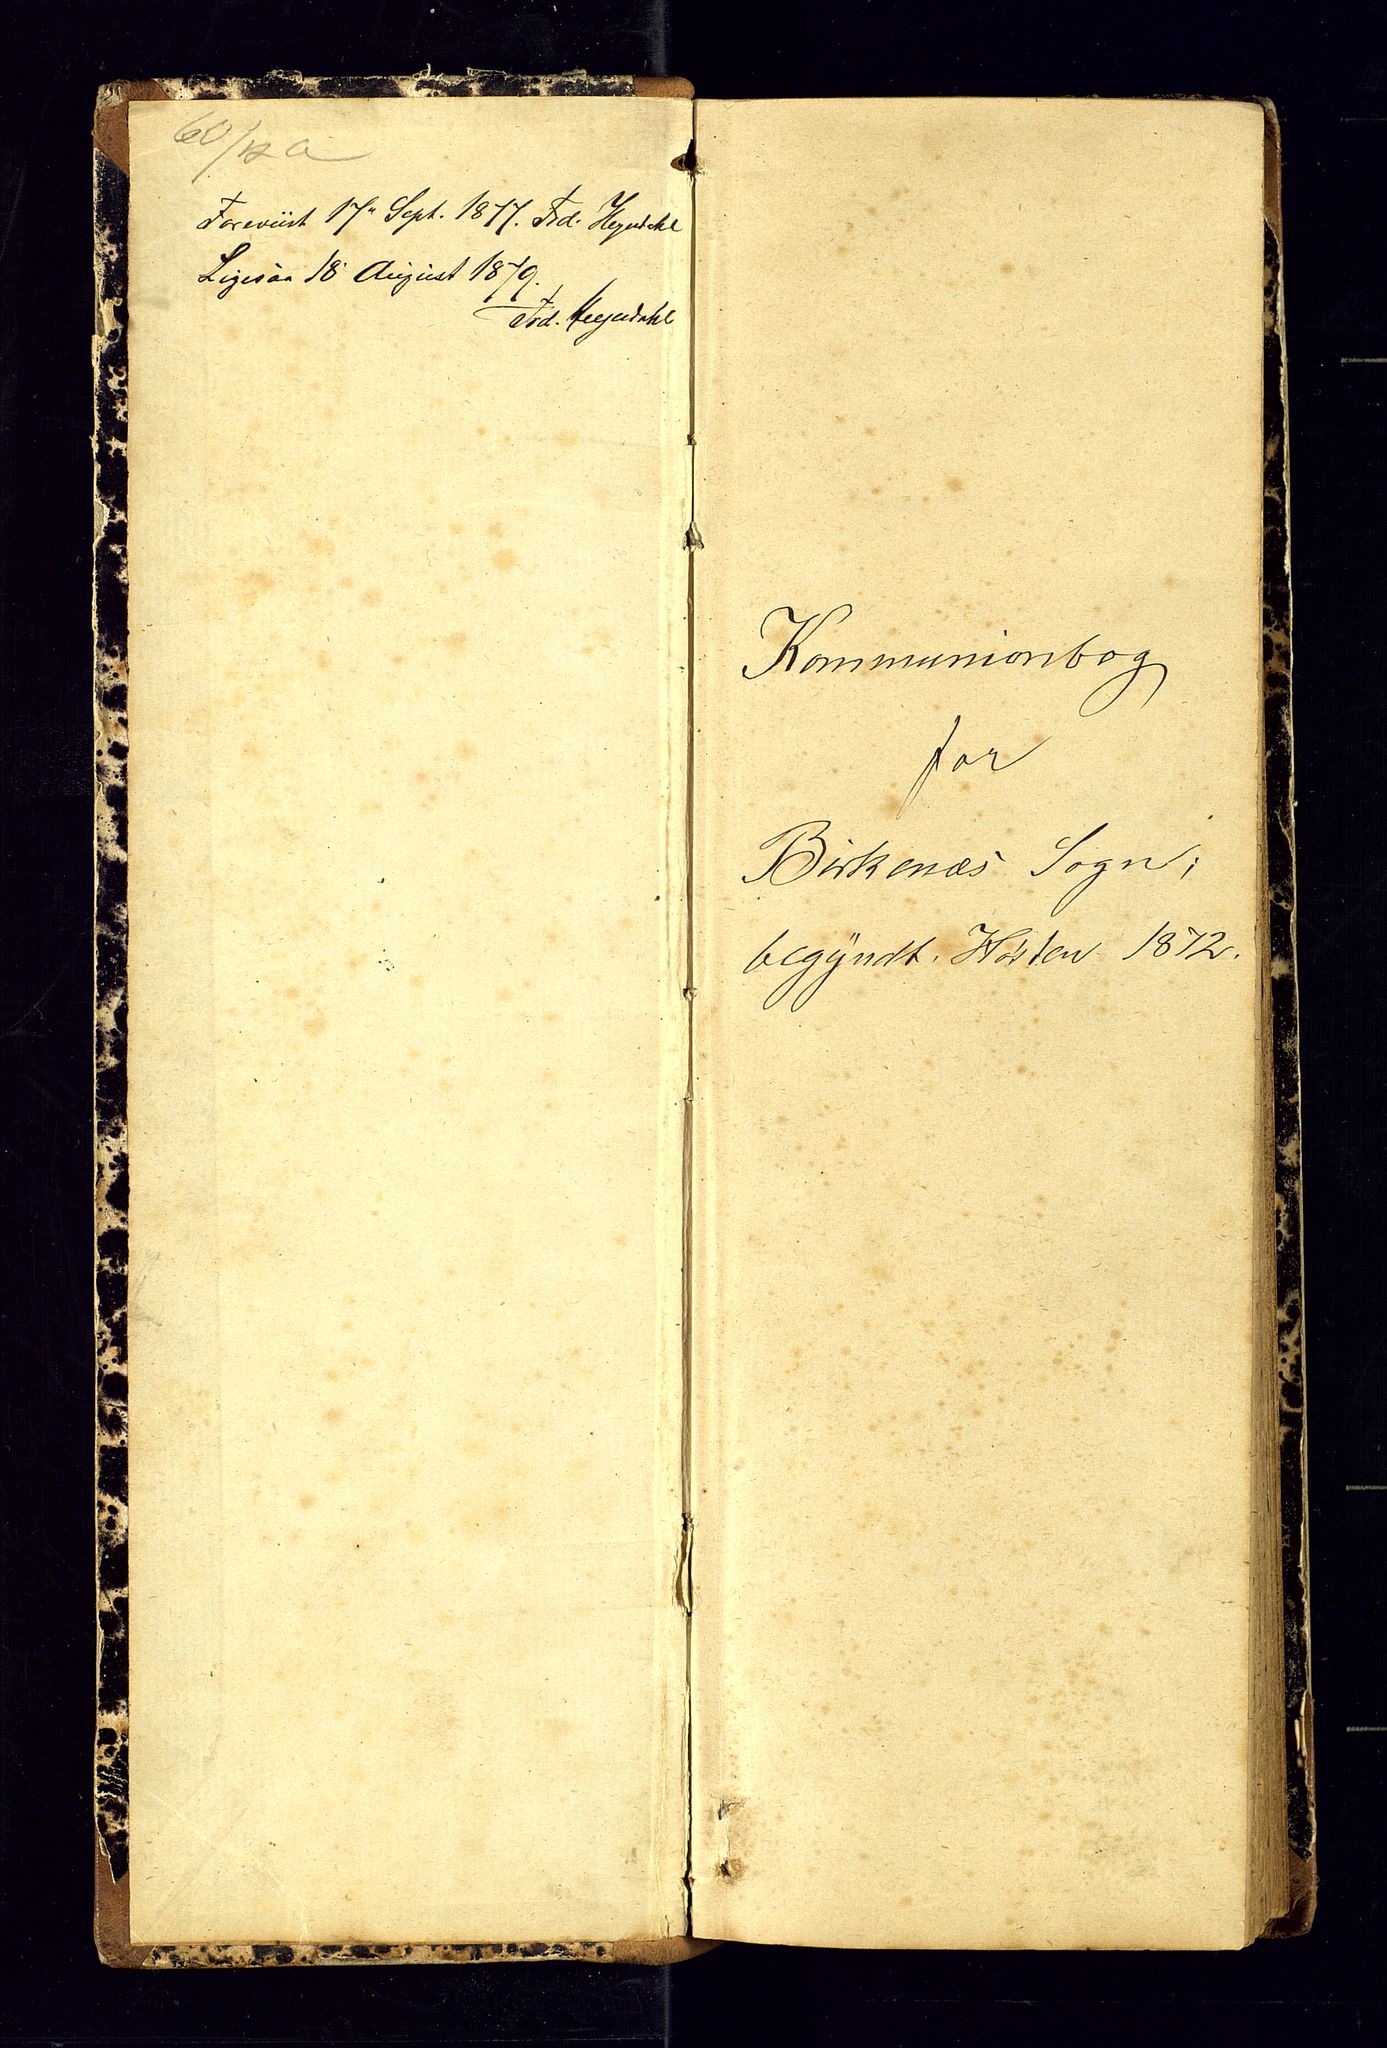 60/12 a
Foreviist 17de Sept. 1877. Frd. Heyerdahl
Ligesaa 18 August 1879.
Frd. Heyerdahl
Kommunionbog
for
Birkenæs Sogn;
begyndt. Høsten 1872.